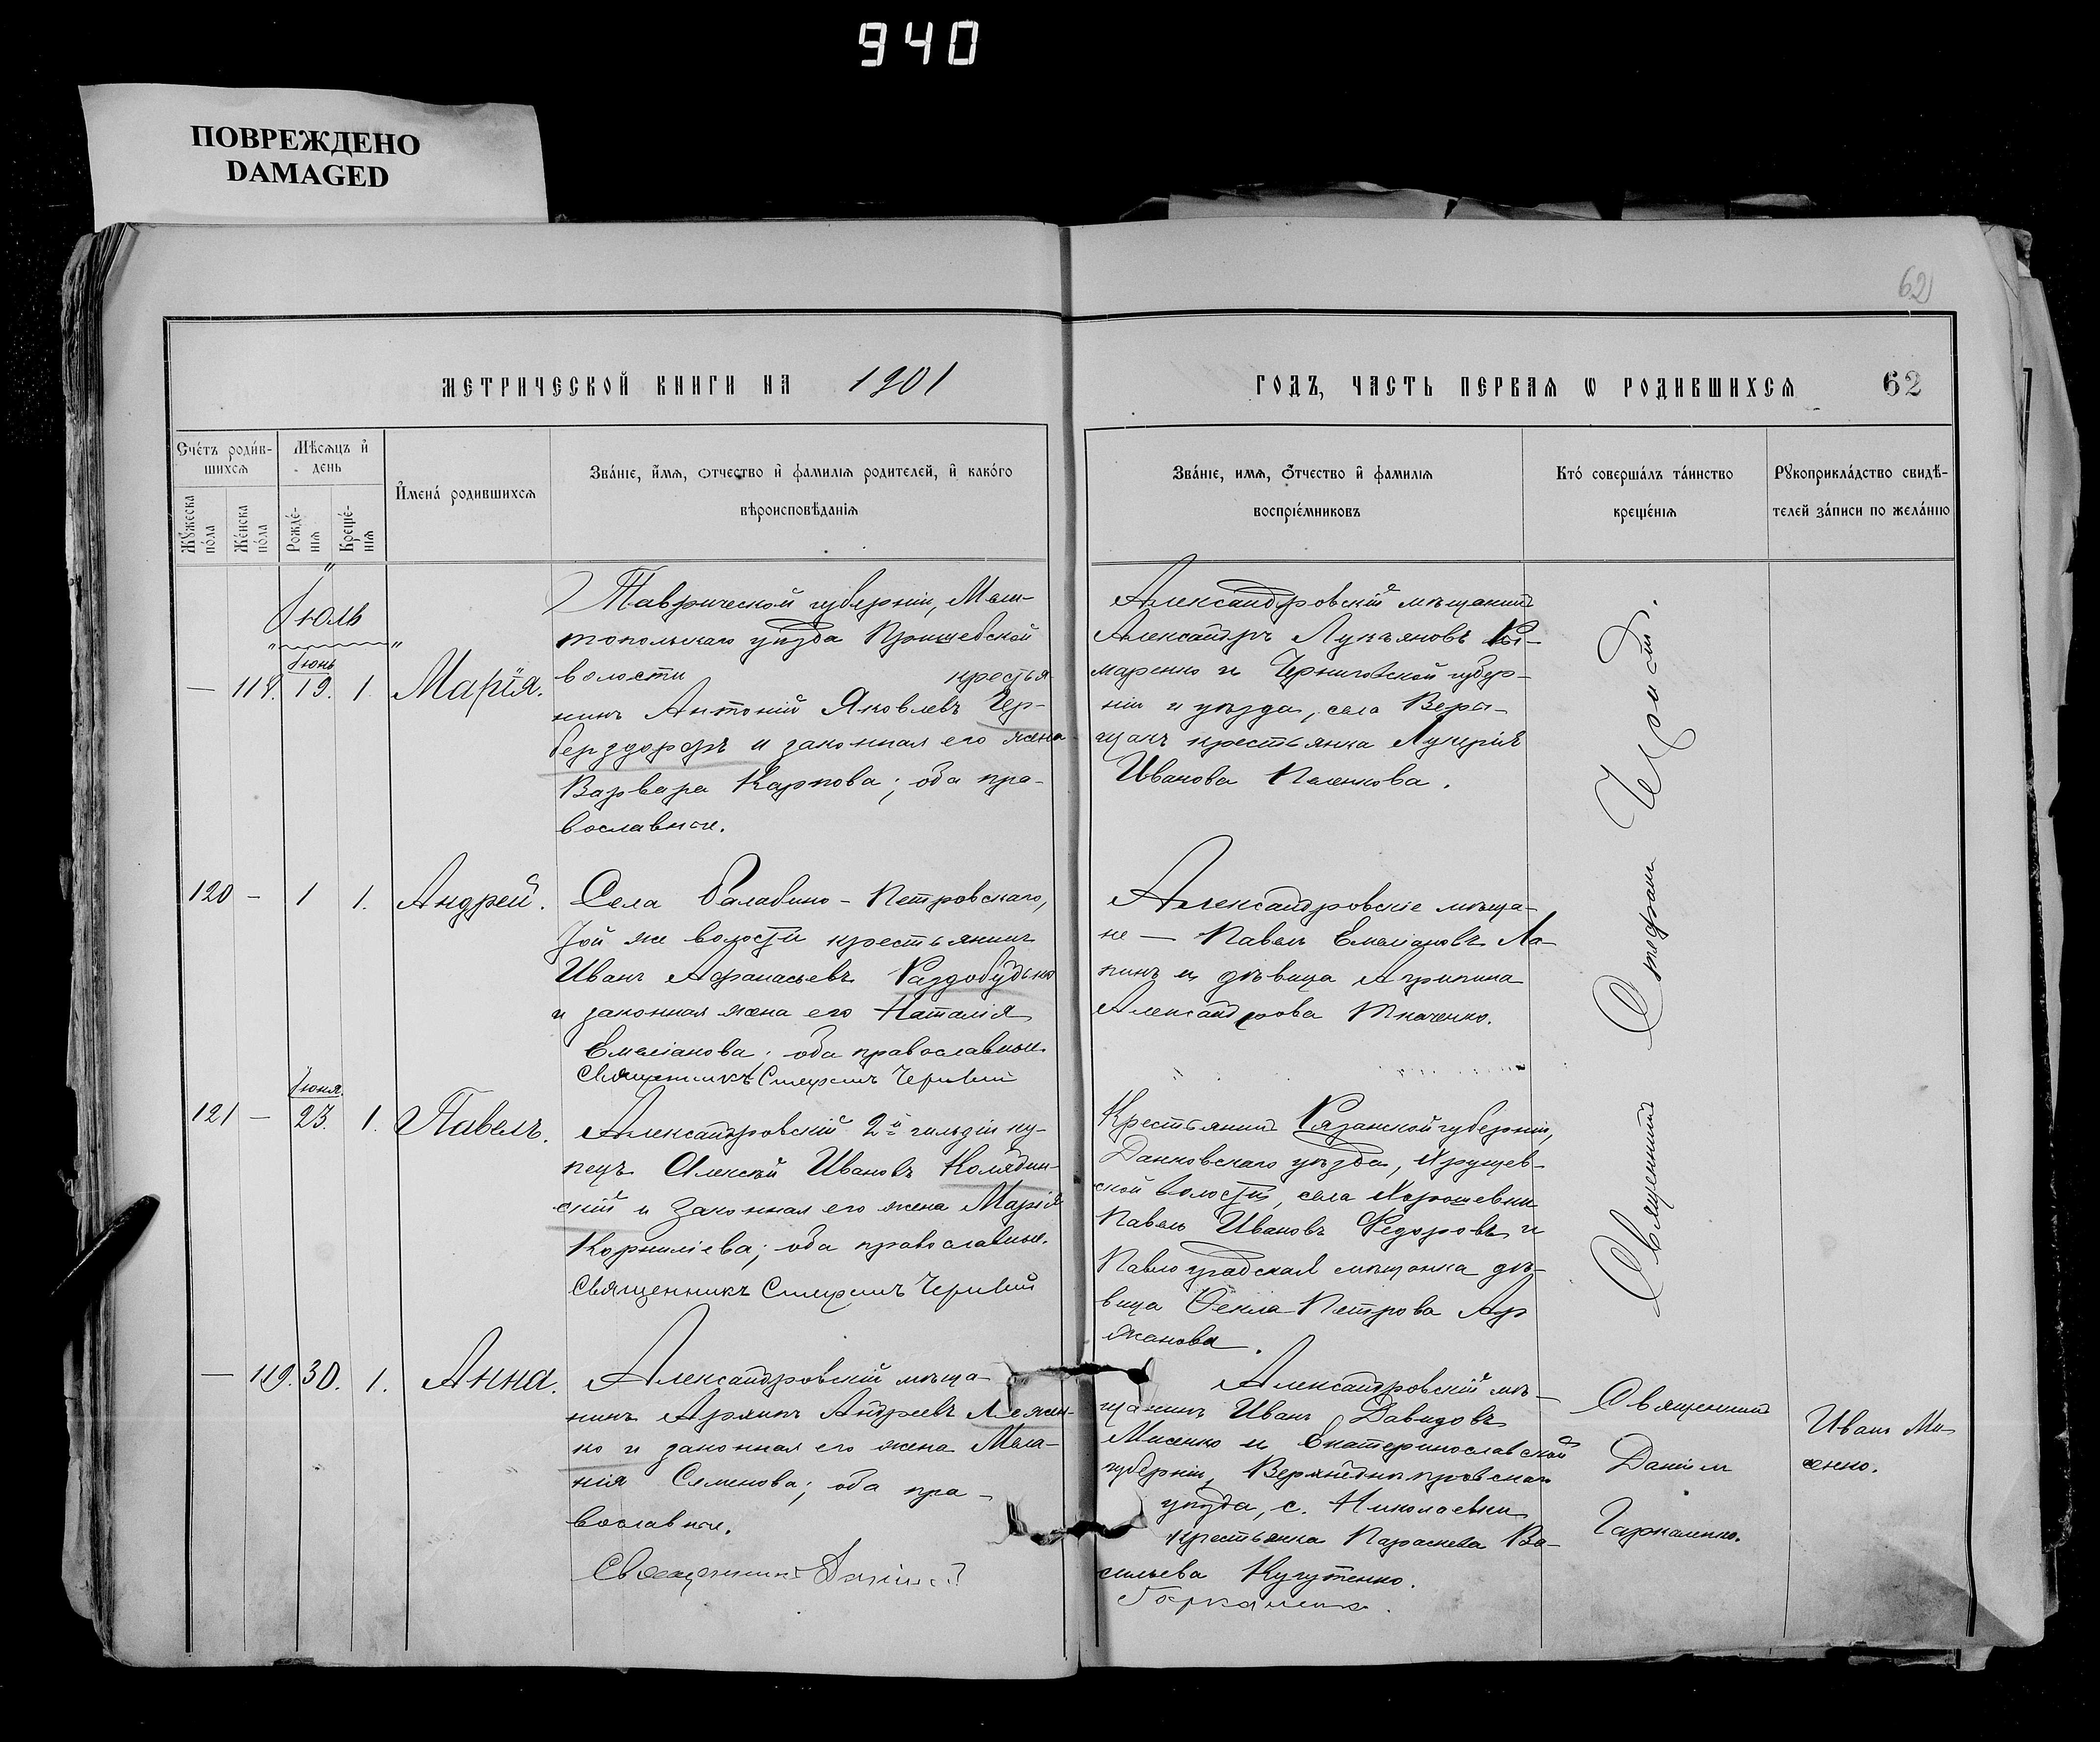 940
ПОВРЕЖДЕНО
DAMAGED
62
МЕТРИЧЕСКОЙ КНИГИ НА 1901
ГОДЪ, ЧАСТЬ ПЕРВАѦ Ѡ РОДИВШИХСѦ 62
Сче́тъ роди́в-
шихсѧ
Мѣсѧцъ и҆
день
И҆мена́ родившихсѧ
Зва́нїе, и҆́мѧ, ѻтчество и҆ фамилїѧ родителей, и҆ како́го
вѣроисповѣданїѧ
Мꙋжеска
по́ла
Же́нска
по́ла
Рожде́-
нїѧ
Креще́-
нїѧ
Зва́нїе, имѧ, ѻтчество и҆ фамилїѧ
воспрїе́мниковъ
Кто̀ соверша́лъ та́инство
креще́нїѧ
Рꙋкоприкла́дство свидѣ́-
телей за́писи по жела́нїю
Іюль
Іюнь
— 118. 19. 1. Марія.
Таврической губерніи, Мели-
топольскаго уѣзда Пришебской
волости крестья
нинъ Антоній Яковлевъ Гер-
берздорфъ и законная его жена
Варвара Карпова; оба пра-
вославные.
Александровскій мѣщанинъ
Александръ Лукьяновъ Ко-
маренко и Черниговской губер-
ніи и уѣзда, села
крестьянка Лукерія
Иванова
120 — 1 1. Андрей.
Села Балабино-Петровскаго,
той же волости крестьянинъ
Иванъ Афанасьевъ Раздобудько
и законная жена его Наталія
Емеліанова; оба православные.
Священникъ Стефанъ
Александровскіе мѣща-
не — Павелъ Емеліановъ Ла-
пинъ и дѣвица Агрипина
Александрова Ткаченко.
Священникъ Стефанъ
Іюня.
121 — 23. 1. Павелъ.
Александровскій 2й гильдіи ку-
пецъ Алексѣй Ивановъ Колядин-
скій и законная его жена Марія
Корниліева; оба православные.
Священникъ Стефанъ
Крестьянинъ Рязанской губерніи,
Данковскаго уѣзда, Хрущев-
ской волости, села
Павелъ Ивановъ Федоровъ и
Павлоградская мѣщанка дѣ-
вица Ѳекла Петрова Ар
жанова.
— 119. 30. 1. Анна.
Александровскій мѣща-
нинъ Андреевъ Лежен-
ко и законная его жена Мела-
нія Семенова; оба пра-
вославные.
Священникъ Даніилъ
Александровскій мѣ-
щанинъ Иванъ Давидовъ
Мисенко и Екатеринославской
губерніи, Верхнеднѣпровскаго
уѣзда, с. Николаевки
крестьянка Параскева Ва-
сильева Кугутенко.
Гаркаленко.
Священникъ
Даніилъ
Гаркаленко.
Иванъ Ми-
сенко.